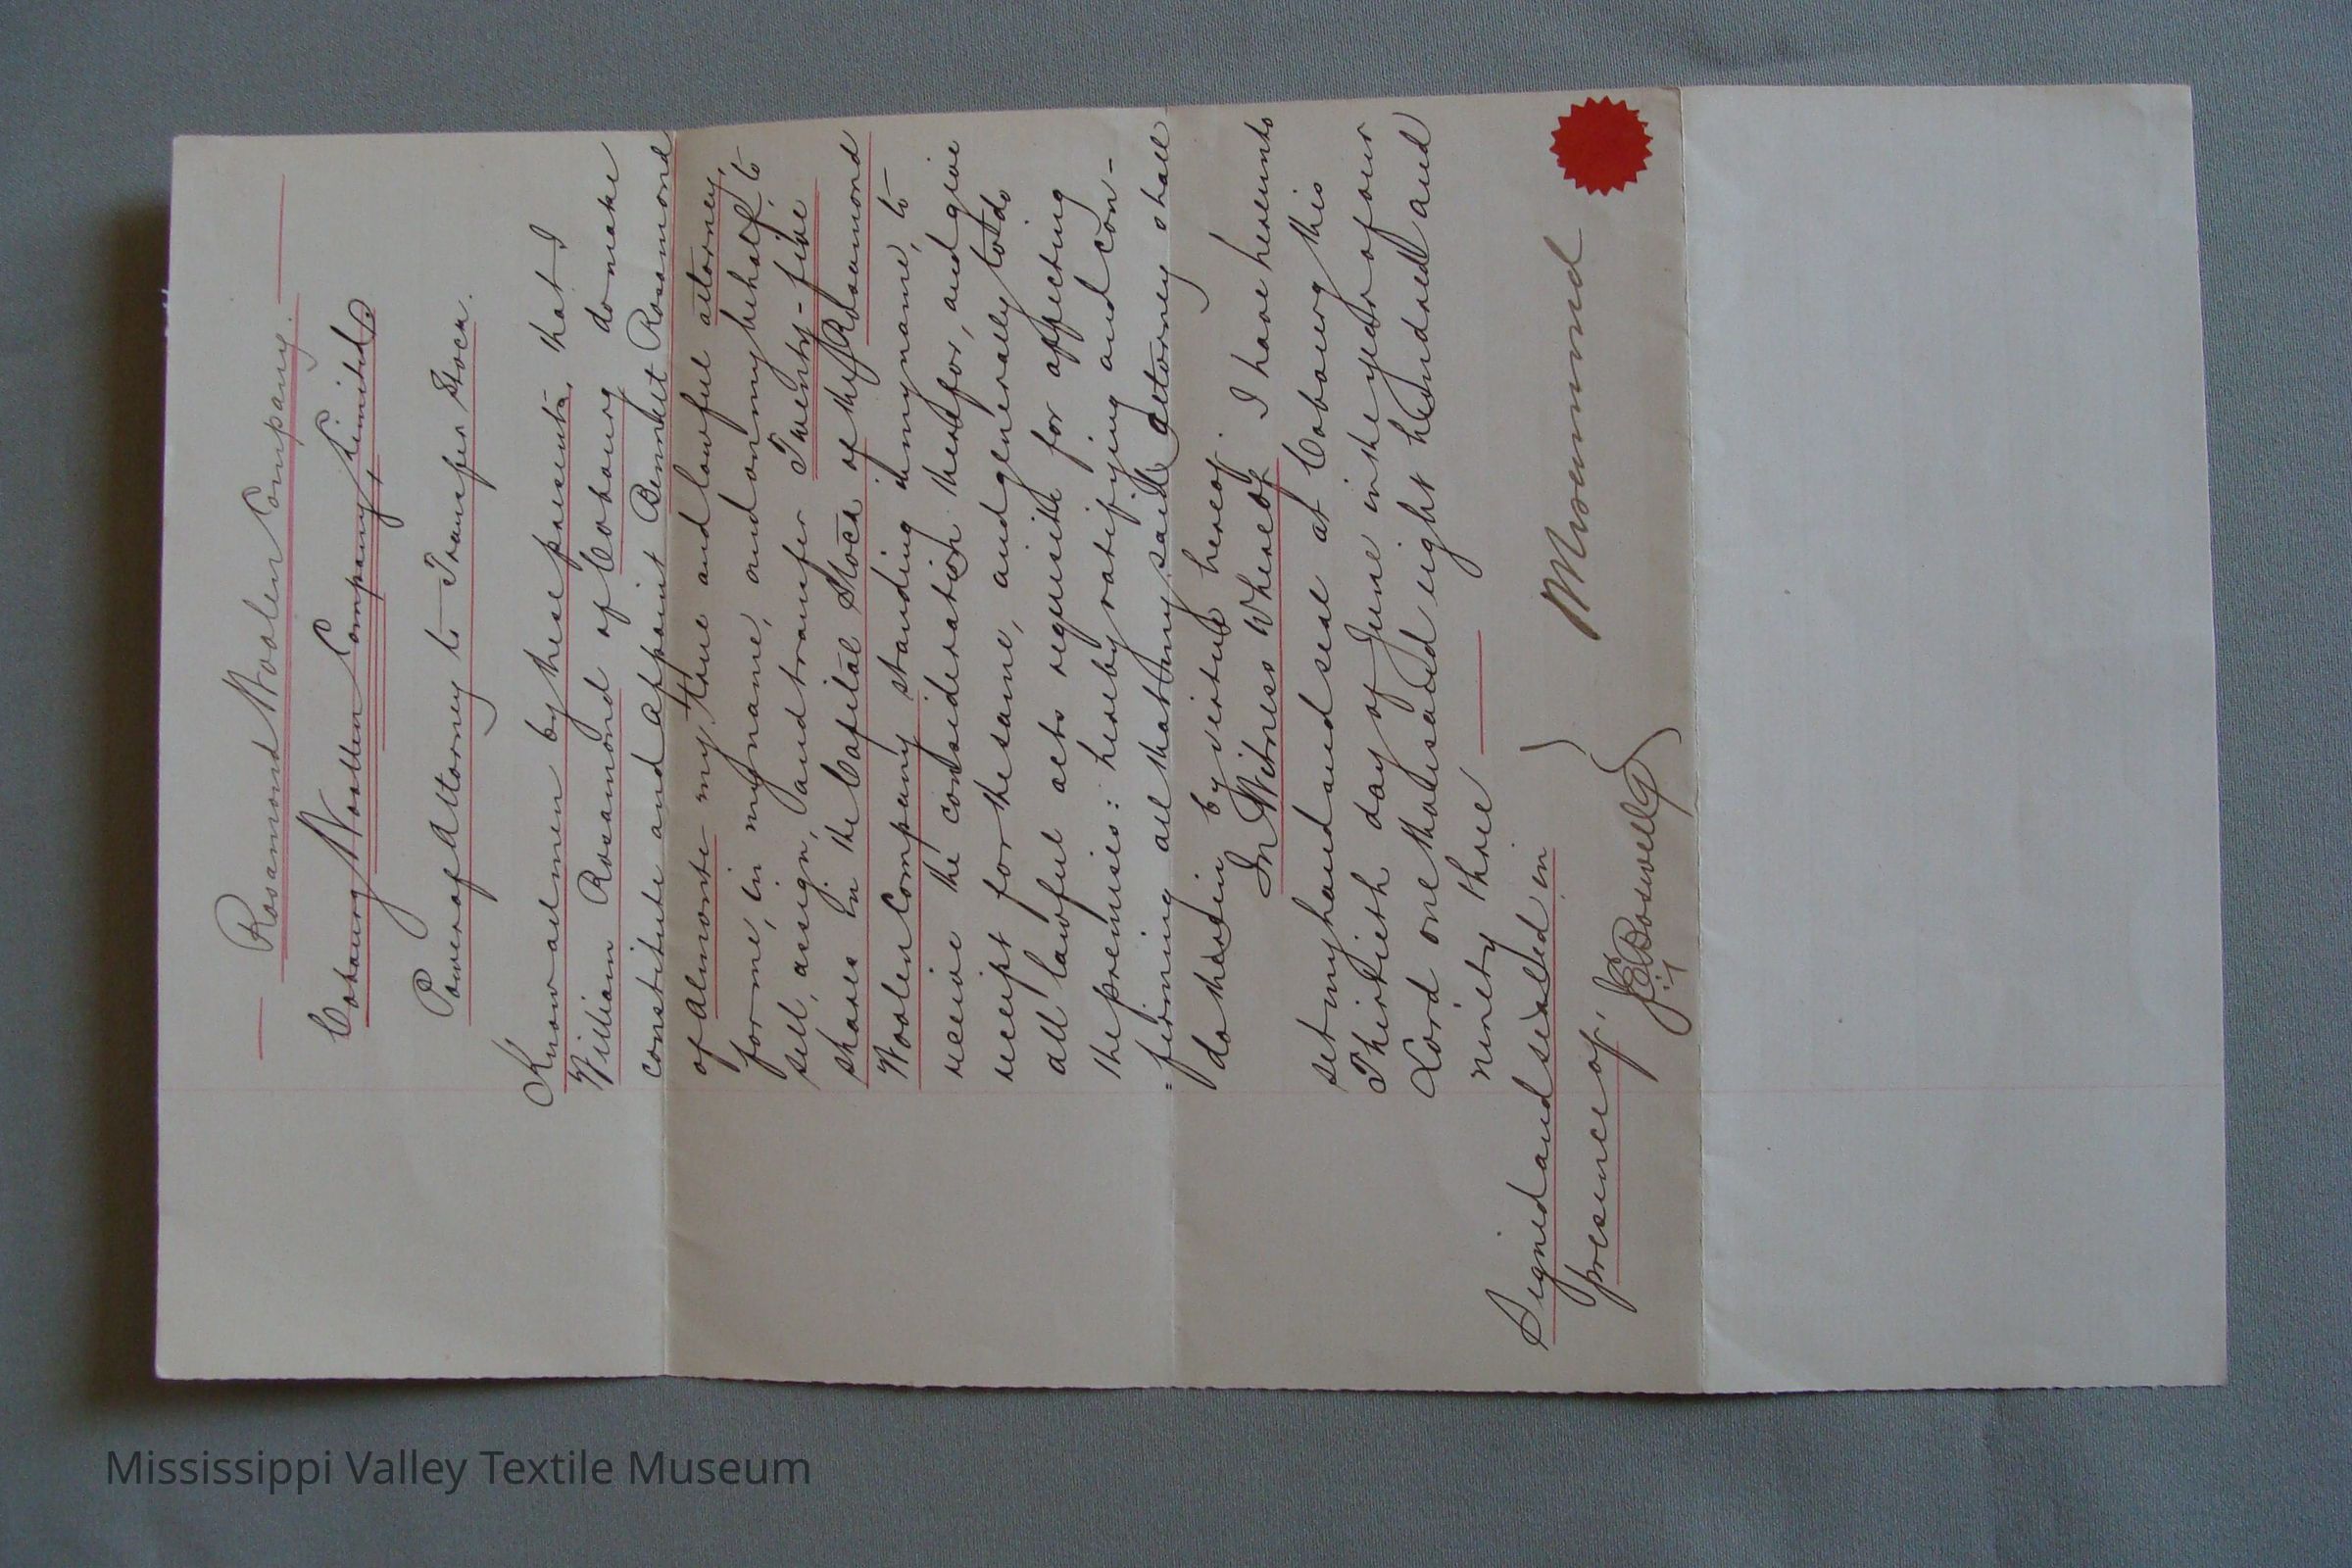 Rosamond Woolen Company.
Cobourg Woollen Company, Limited.
Power of Attorney to Transfer Stock.
Know all men by these presents, that I
William Rosamond of Cobourg do make
constitute and appoint Bennett Rosamond
of Almonte my true and lawful attorney,
for me, in my name, and on my behalf, to
sell, assign, and transfer Twenty-five
shares in the Capital Stock of the Rosamond
Woolen Company standing in my name, to
receive the consideration therefor, and give
receipt for the same, and generally to do
all lawful acts requisite for effecting
the premises: hereby ratifying and con-
=firming all that my said attorney shall
do herein by virtue hereof.
In Witness Whereof I have hereunto
set my hand and seal at Cobourg this
Thirtieth day of June in the year of our
Lord one thousand eight hundred and
ninety three
Signed and sealed in
presence of,
WRosamond
Boswell
Mississippi Valley Textile Museum